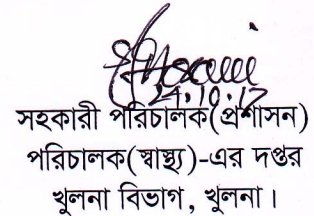 ২৭.১০.১৭
সহকারী পরিচালক(প্রশাসন)
পরিচালক(স্বাস্থ্য)-এর দপ্তর
খুলনা বিভাগ, খুলনা।